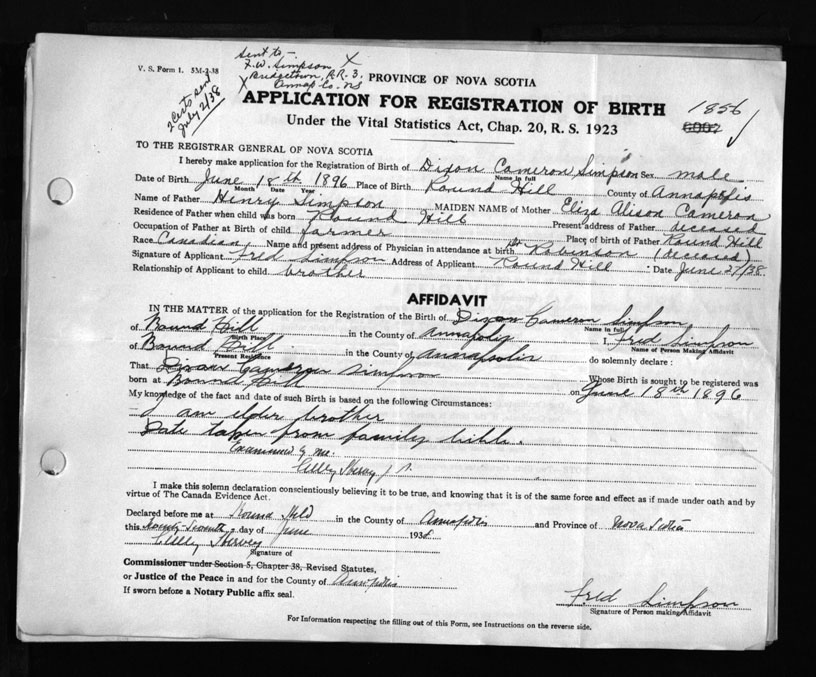 V. S. Form 1. 5M-2-38
Sent to -
F. W. Simpson X
X Bridgetown, R.R. 3,
Annap Co. NS
July 2/38
PROVINCE OF NOVA SCOTIA
APPLICATION FOR REGISTRATION OF BIRTH
1856
Under the Vital Statistics Act, Chap. 20, R. S. 1923
TO THE REGISTRAR GENERAL OF NOVA SCOTIA
I hereby make application for the Registration of Birth of Dixon Cameron Simpson Sex male
Name in full
Date of Birth June 18th 1896 Place of Birth Round Hill County of Annapolis
Month Date Year
Name of Father Henry Simpson MAIDEN NAME of Mother Eliza Alison Cameron
Residence of Father when child was born Round Hill Present address of Father deceased
Occupation of Father at Birth of child farmer Place of birth of Father Round Hill
Race Canadian Name and present address of Physician in attendance at birth Dr Robinson (deceased)
Signature of Applicant Fred Simpson Address of Applicant Round Hill Date June 27/38
Relationship of Applicant to child brother
AFFIDAVIT
IN THE MATTER of the application for the Registration of the Birth of Dixon Cameron Simpson
Name in full
of Round Hill in the County of Annapolis I, Fred Simpson
Birth Place Name of Person Making Affidavit
of Round Hill in the County of Annapolis do solemnly declare:
Present Residence
That Dixon Cameron Simpson Whose Birth is sought to be registered was
born at Round Hill on June 18th 1896
My knowledge of the fact and date of such Birth is based on the following Circumstances:
I am elder brother
Date taken from family bible.
Examined by me
Hervey J P.
I make this solemn declaration conscientiously believing it to be true, and knowing that it is of the same force and effect as if made under oath and by
virtue of The Canada Evidence Act.
Declared before me at Round Hill in the County of Annapolis and Province of Nova Scotia
this Twenty-Seventh day of June 1938
Hervey
Signature of
Commissioner under Section 5, Chapter 38, Revised Statutes,
or Justice of the Peace in and for the County of Annapolis
If sworn before a Notary Public affix seal.
Fred Simpson
Signature of Person making Affidavit
For Information respecting the filling out of this Form, see Instructions on the reverse side.